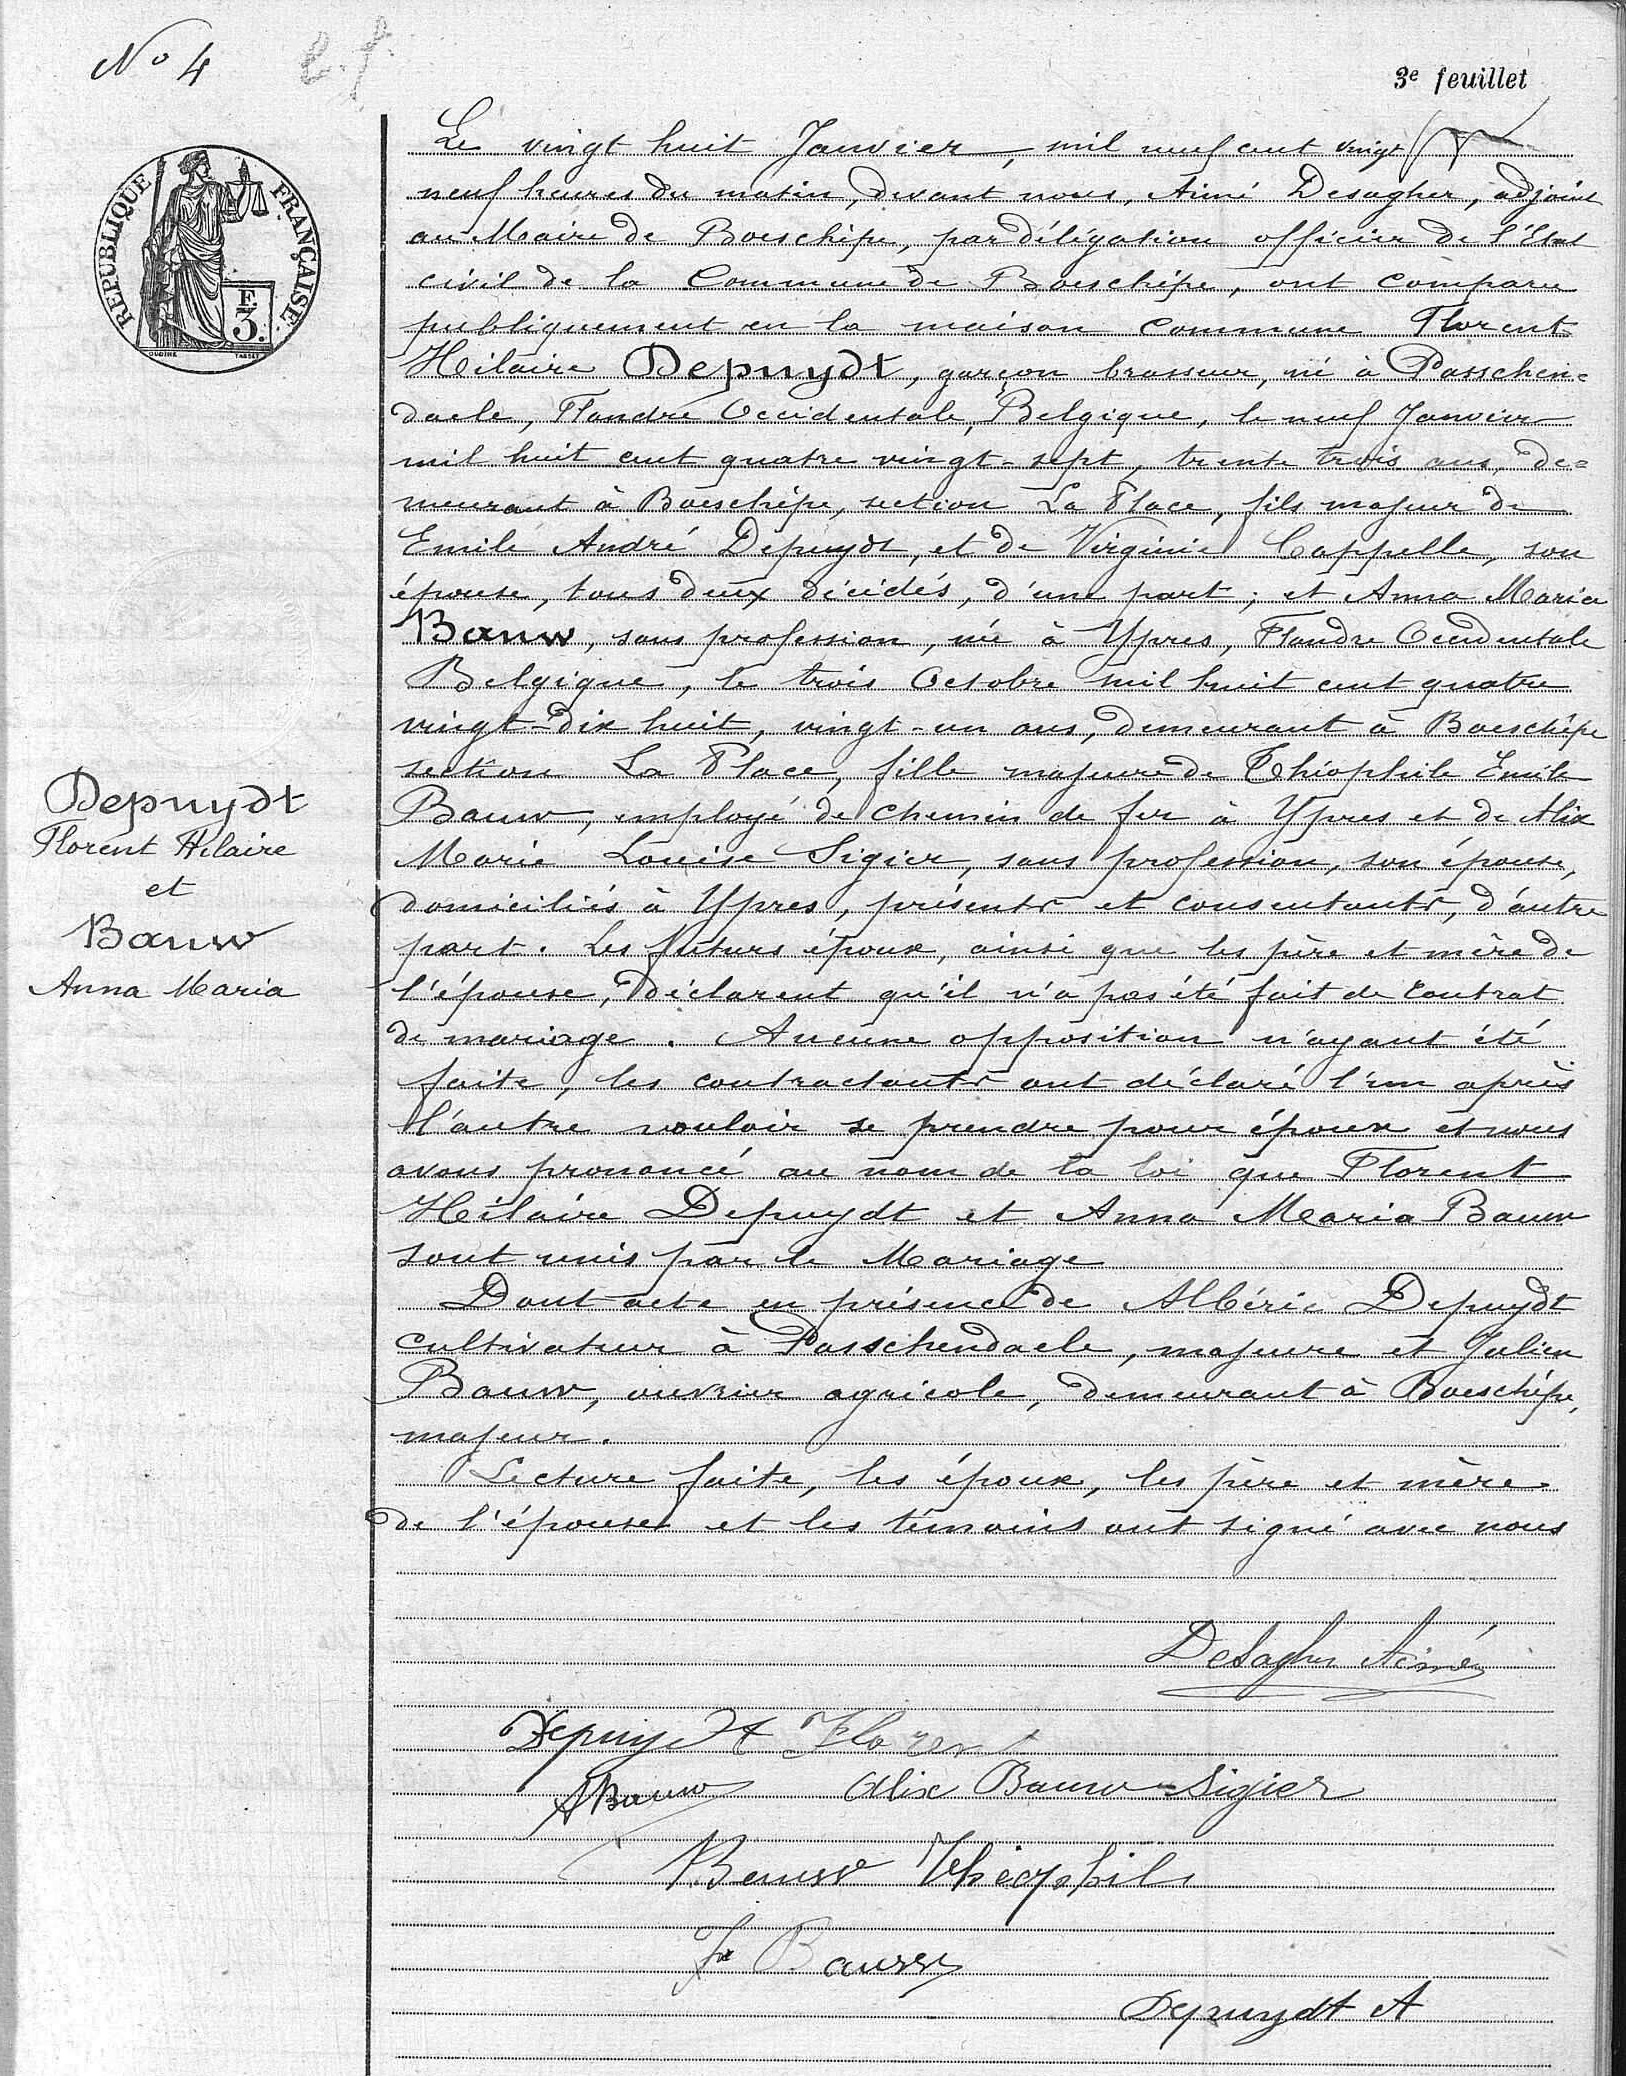 No 4
e.f.
3e feuillet
REPUBLIQUE FRANÇAISE
F.
3.
OUDINE
TASSET
Le vingt huit Janvier, mil neuf cent vingt
neuf heures du matin, devant nous, Aimé Desagher, adjoint
au Maire de Boeschèpe, par délégation officier de l'Etat
civil de la Commune de Boeschèpe, ont comparu
publiquement en la maison commune Florent
Hilaire Depuydt, garçon brasseur, né à Passchen=
daele, Flandre Occidentale, Belgique, le neuf Janvier
mil huit cent quatre vingt-sept, trente trois ans, de=
meurant à Boeschèpe, section La Place, fils majeur de
Emile André Depuydt, et de Virginie Cappelle, son
épouse, tous deux décédés, d'une part; et Anna Maria
Bauw, sans profession, née à Ypres, Flandre Occidentale
Belgique, le trois Octobre mil huit cent quatre
vingt-dix huit, vingt-un ans, demeurant à Boeschèpe
section La Place, fille majeure de Théophile Emile
Bauw, employé de chemin de fer à Ypres et de Alix
Marie Louise Sigier, sans profession, son épouse,
domiciliés à Ypres, présents et consentants, d'autre
part. Les futurs époux, ainsi que les père et mère de
l'épouse, déclarent qu'il n'a pas été fait de Contrat
de mariage. Aucune opposition n'ayant été
faite, les contractants ont déclaré l'un après
l'autre vouloir se prendre pour époux et nous
avons prononcé au nom de la loi que Florent
Hilaire Depuydt et Anna Maria Bauw
sont unis par le Mariage
Dont acte en présence de Albéric Depuydt
cultivateur à Passchendaele, majeure et Julien
Bauw, ouvrier agricole, demeurant à Boeschèpe,
majeur.
Lecture faite, les époux, les père et mère
de l'épouse et les témoins ont signé avec nous
Depuydt
Florent Hilaire
et
Bauw
Anna Maria
Desagher Aimé
Depuydt Florent
A Bauw Alix Bauw Sigier
Bauw Théophile
Bauw
Depuydt A